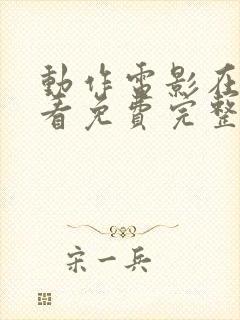 動作電影在
看免費完整
宋一兵